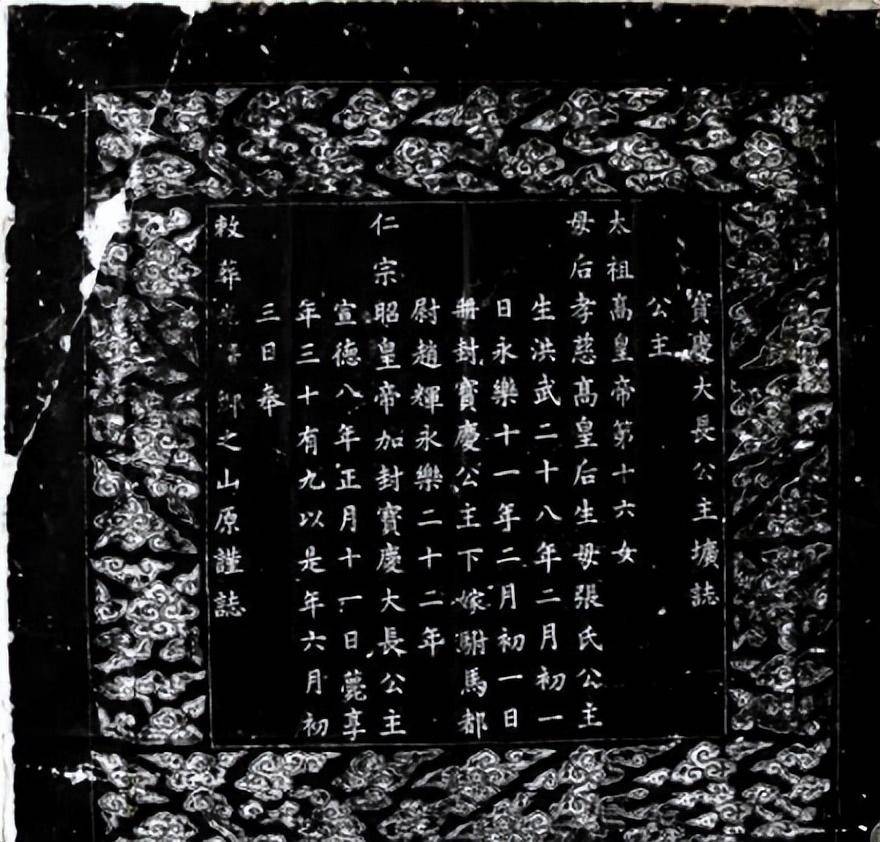 寶慶大長公主壙誌
公主
太祖高皇帝第十六女
母后孝慈高皇后生母張氏公主
生洪武二十八年二月初一
日永樂十一年二月初一日
冊封寶慶公主下嫁駙馬都
尉趙輝永樂二十二年
仁宗昭皇帝加封寶慶大長公主
宣德八年正月十一日薨享
年三十有九以是年六月初
三日奉
敕葬鄉之山原謹誌